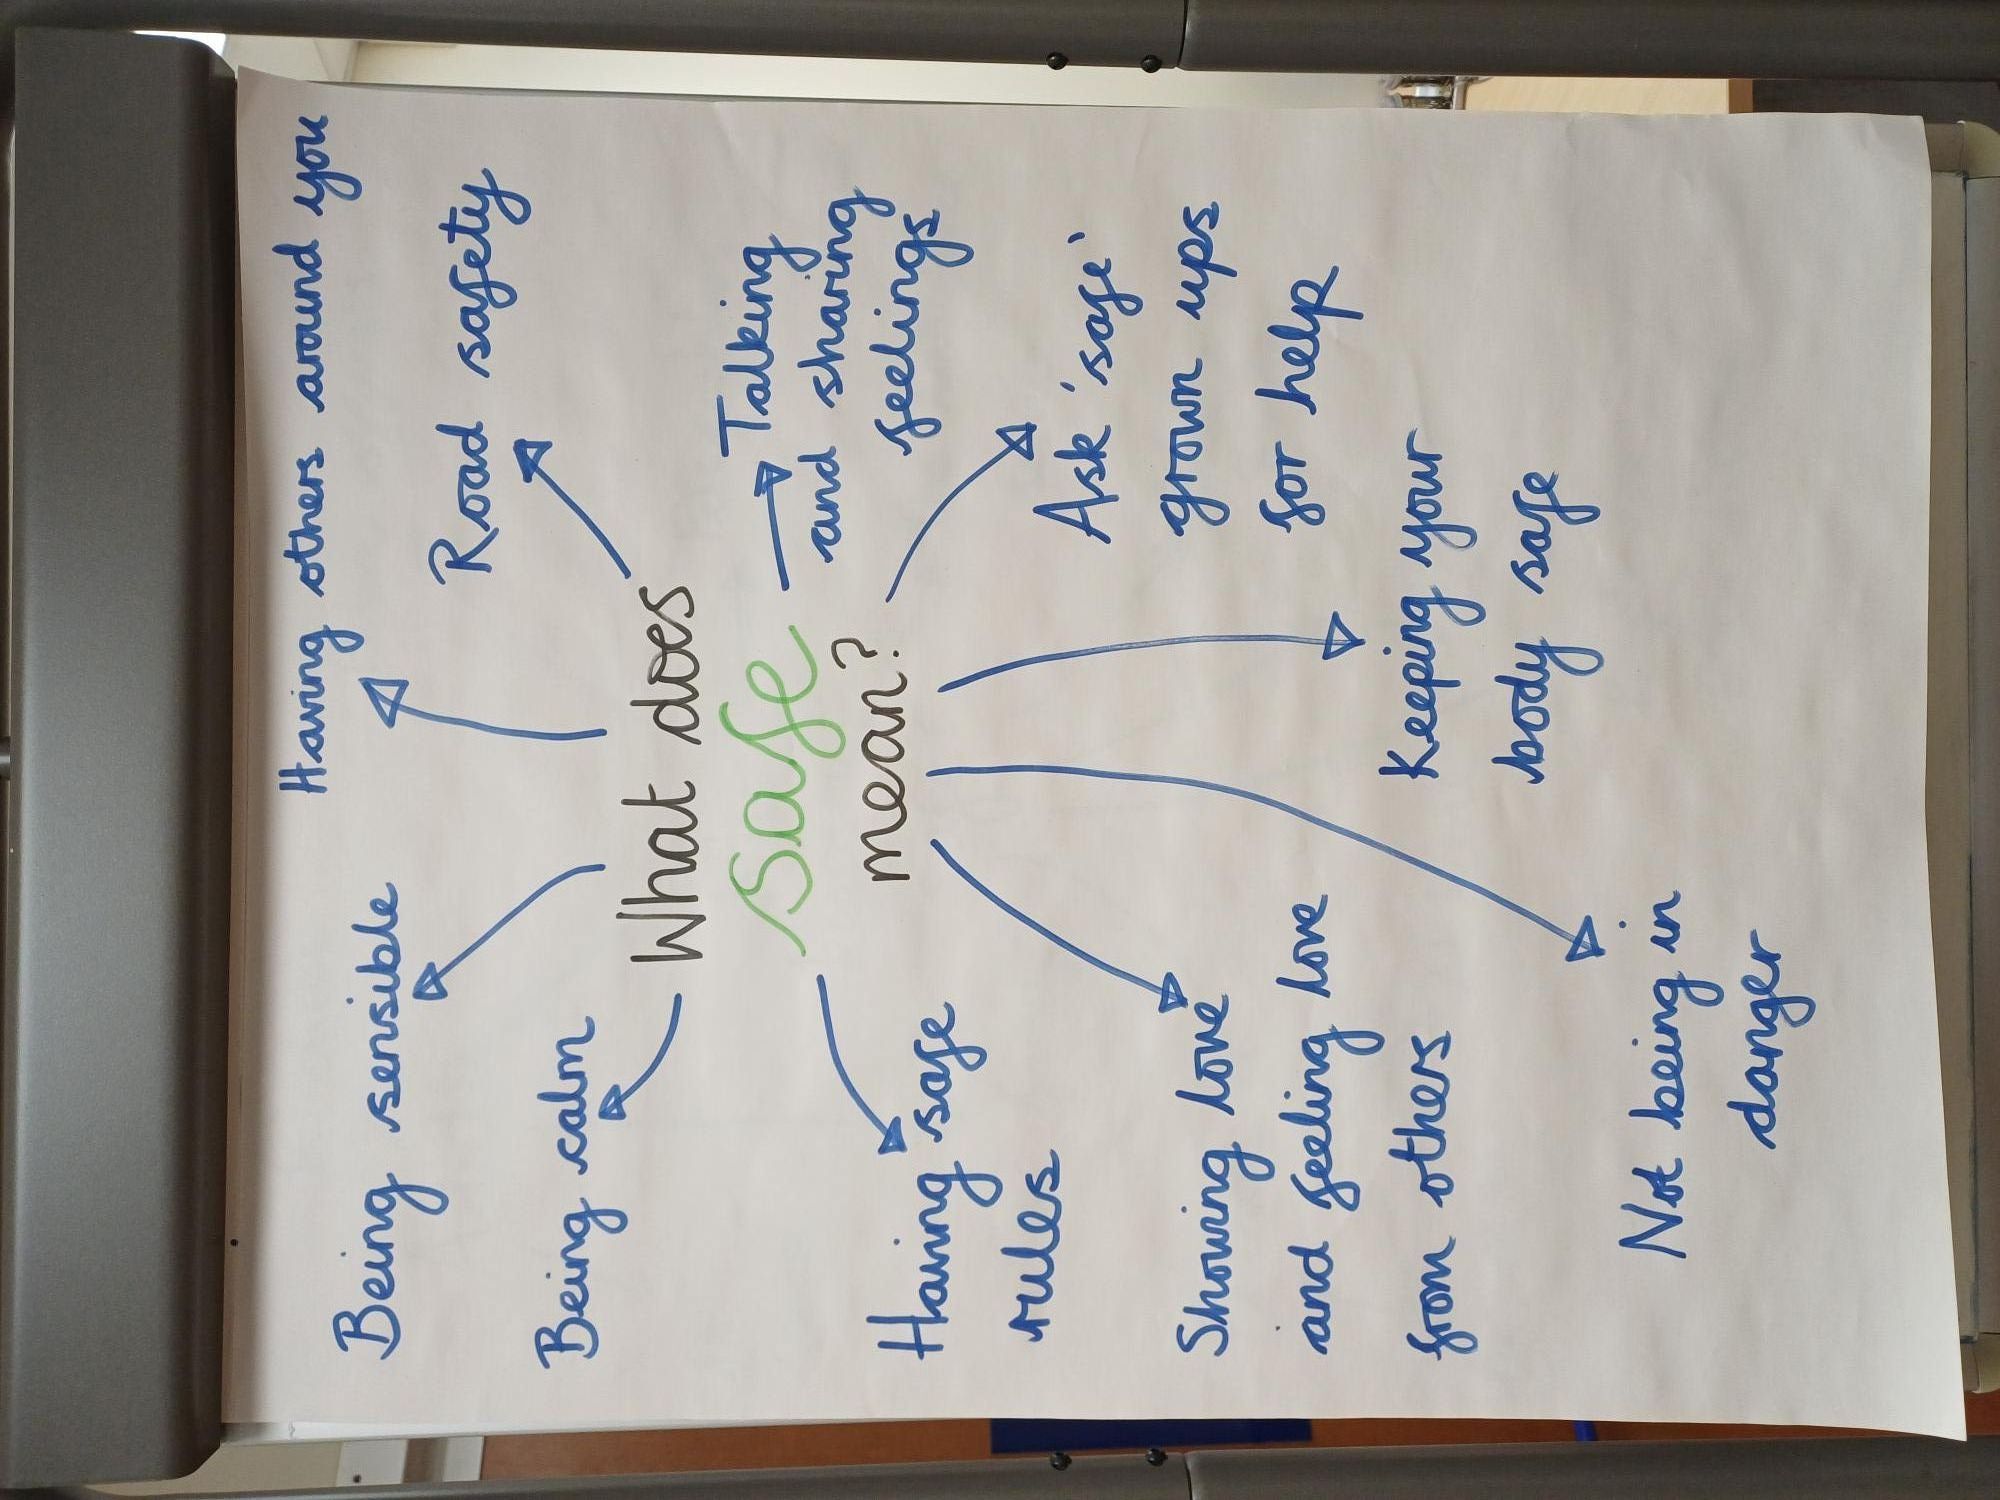 Having others around you
Being sensible
Road safety
Being calm
What does
safe
mean?
Talking
and sharing
feelings
Having safe
rules
Ask 'safe'
grown ups
for help
Showing love
and feeling love
from others
Keeping your
body safe
Not being in
danger